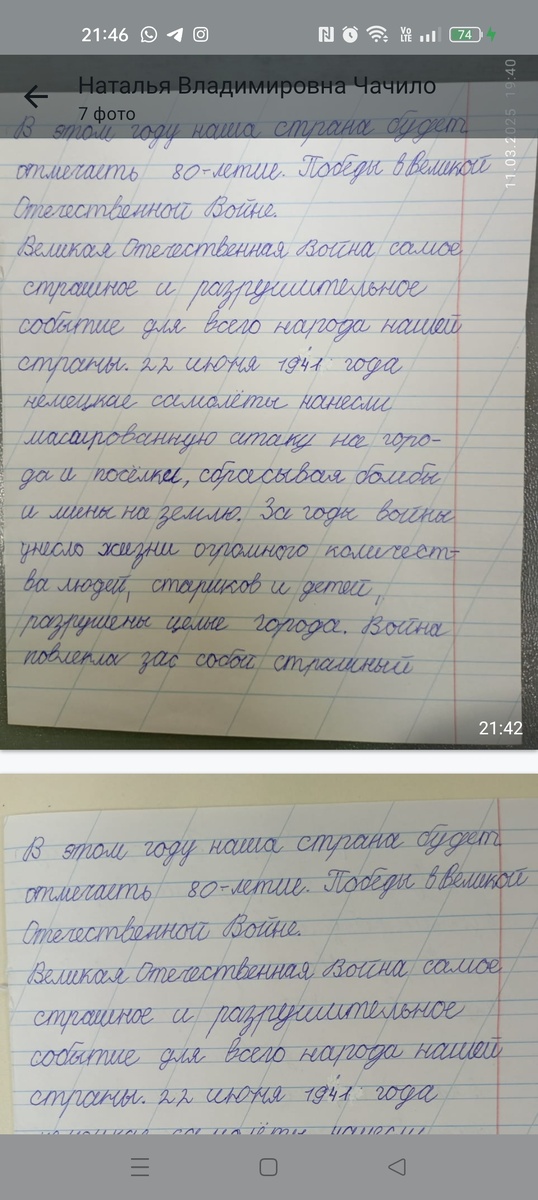 21:46
VoLTE
74
Наталья Владимировна Чачило
7 фото
11.03.2025 19:40
В этом году наша страна будет
отмечаеть 80-летие. Победы в Великой
Отечественной Войне.
Великая Отечественная Война самое
страшное и разрушительное
событие для всего народа нашей
страны. 22 июня 1941 года
немецкае самолёты нанесли
масированную атаку на горо-
да и посёлки, сбрасывая бомбы
и мины на землю. За годы войны
унесло жизни огромного количест-
ва людей, стариков и детей,
разрушены целые города. Война
повлекла зас собой страшный
21:42
В этом году наша страна будет
отмечаеть 80-летие. Победы в Великой
Отечественной Войне.
Великая Отечественная Война самое
страшное и разрушительное
событие для всего народа нашей
страны. 22 июня 1941 года